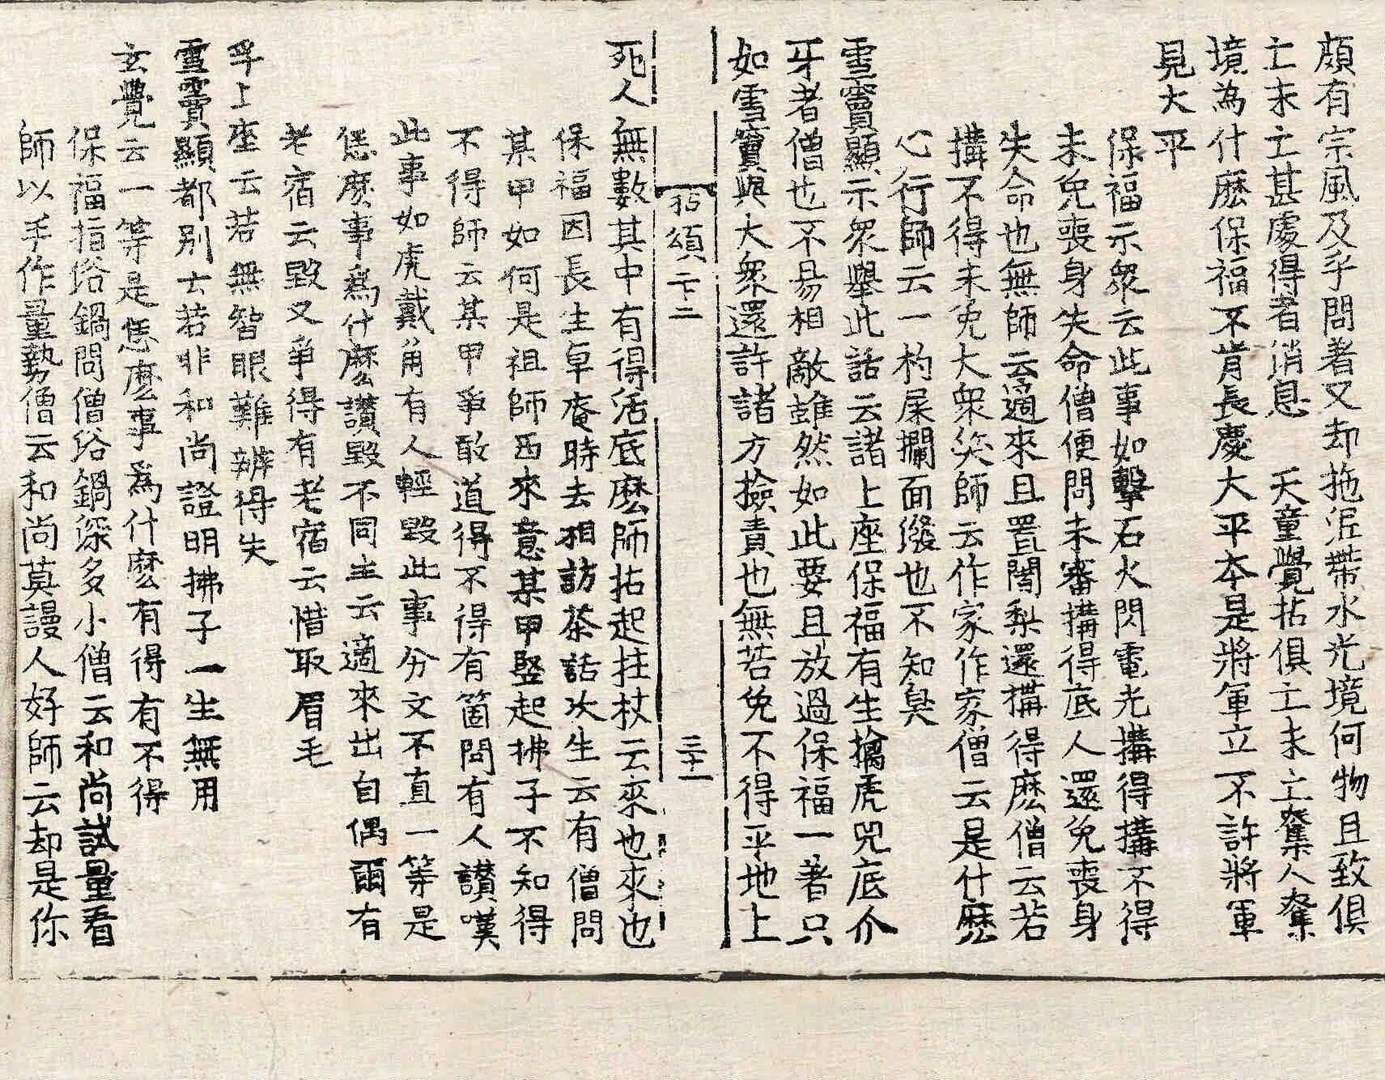 頗有宗風及乎問著又却拖泥帶水光境何物且致俱
亡未亡甚處得者消息　天童覺拈俱亡未亡奪人奪
境為什麽保福不肯長慶大平本是將軍立不許將軍
見大平
保福示衆云此事如擊石火閃電光搆得搆不得
未免喪身失命僧便問未審搆得底人還免喪身
失命也無師云適來且置闍梨還搆得麽僧云若
搆不得未免大衆笑師云作家作家僧云是什麽
心行師云一杓屎攔面潑也不知臭
雪竇顯示衆擧此話云諸上座保福有生擒虎兕底介
牙者僧也不易相敵雖然如此要且放過保福一著只
如雪竇與大衆還許諸方撿責也無若免不得平地上
拈頌二十二　三十一
死人無數其中有得活底麽師拈起拄杖云來也來也
保福因長生卓庵時去相訪茶話次生云有僧問
某甲如何是祖師西來意某甲竪起拂子不知得
不得師云某甲爭敢道得不得有箇問有人讃嘆
此事如虎戴角有人輕毀此事分文不直一等是
恁麽事爲什麽讃毀不同生云適來出自偶爾有
老宿云毀又爭得有老宿云惜取眉毛
孚上座云若無智眼難辨得失
雪竇顯都別云若非和尚證明拂子一生無用
玄覺云一等是恁麽事爲什麽有得有不得
保福指浴鍋問僧浴鍋深多小僧云和尚試量看
師以手作量勢僧云和尚莫謾人好師云却是你